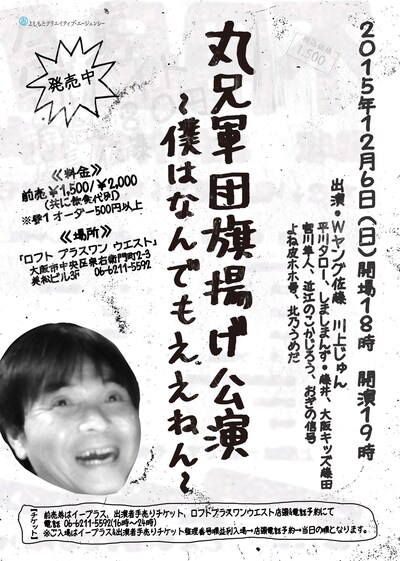 よしもとクリエイティブ・エージェンシー
2015年12月6日(日)開場18時 開演19時
出演・Wヤング佐藤 川上じゅん
平川タロー、しましまんず・藤井、大阪キッズ藤田
吉川隼人、近江のこかじろう、おぎの信号
よね皮ホホ骨、北乃うめだ
丸兄軍団旗揚げ公演
~僕はなんでもええねん~
発売中
≪料金≫
前売¥1,500/¥2,000
(共に飲食代別)
※要1オーダー500円以上
≪場所≫
「ロフトプラスワン ウエスト」
大阪市中央区宗右衛門町2-3
美松ビル3F 06-6211-5592
【チケット】
前売券はイープラス、出演者手売りチケット、ロフトプラスワンウエスト店頭&電話予約にて
電話 06-6211-5592(16時~24時)
※ご入場はイープラス&出演者手売りチケット整理番号順並列入場→店頭電話予約→当日の順となります。